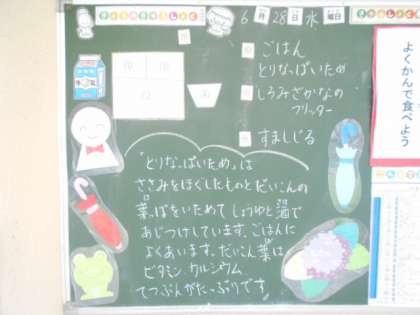 きょうのきゅうしょく
6月28日水曜日
ごはん
とりなっぱいため
しろみざかなの
フリッター
すましじる
よくかんで食べよう
「とりなっぱいため」は
ささみをほぐしたものとだいこんの
葉っぱをいためてしょうゆと酒で
あじつけしています。ごはんに
よくあいます。だいこん葉は
ビタミン、カルシウム
てつぶんがたっぷりです